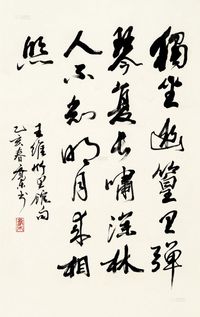 獨坐幽篁里彈
琴复長嘯深林
人不知明月来相
照
王維竹里館句
乙亥春